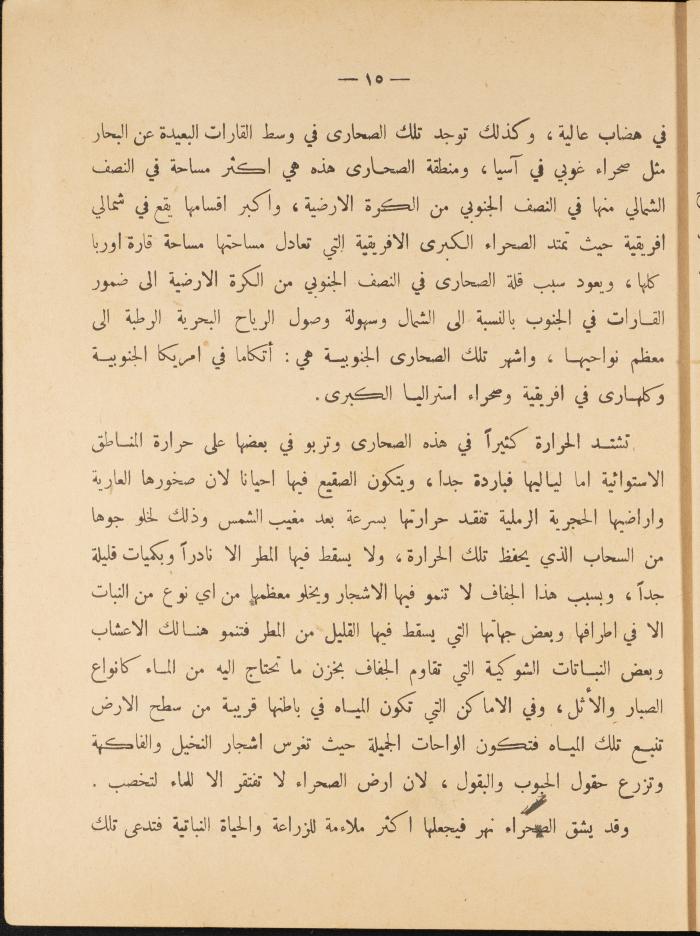 — ١٥ —
في هضاب عالية ، وكذلك توجد تلك الصحارى في وسط القارات البعيدة عن البحار
مثل صحراء غوبي في آسيا ، ومنطقة الصحارى هذه هي اكثر مساحة في النصف
الشمالي منها في النصف الجنوبي من الكرة الارضية ، واكبر اقسامها يقع في شمالي
افريقية حيث تمتد الصحراء الكبرى الافريقية التي تعادل مساحتها مساحة قارة اوربا
كلها ، ويعود سبب قلة الصحارى في النصف الجنوبي من الكرة الارضية الى ضمور
القارات في الجنوب بالنسبة الى الشمال وسهولة وصول الرياح البحرية الرطبة الى
معظم نواحيها ، واشهر تلك الصحارى الجنوبية هي : أتكاما في امريكا الجنوبية
وكلهارى في افريقية وصحراء استراليا الكبرى .
تشتد الحرارة كثيراً في هذه الصحارى وتربو في بعضها على حرارة المناطق
الاستوائية اما لياليها فباردة جدا ، ويتكون الصقيع فيها احيانا لان صخورها العارية
واراضيها الحجرية الرملية تفقد حرارتها بسرعة بعد مغيب الشمس وذلك لخلو جوها
من السحاب الذي يحفظ تلك الحرارة ، ولا يسقط فيها المطر الا نادراً وبكميات قليلة
جداً ، وبسبب هذا الجفاف لا تنمو فيها الاشجار ويخلو معظمها من اي نوع من النبات
الا في اطرافها وبعض جهاتها التي يسقط فيها القليل من المطر فتنمو هنالك الاعشاب
وبعض النباتات الشوكية التي تقاوم الجفاف بخزن ما تحتاج اليه من الماء كانواع
الصبار والأثل ، وفي الاماكن التي تكون المياه في باطنها قريبة من سطح الارض
تنبع تلك المياه فتكون الواحات الجميلة حيث تغرس اشجار النخيل والفاكهة
وتزرع حقول الحبوب والبقول ، لان ارض الصحراء لا تفتقر الا للماء لتخصب .
وقد يشق الصحراء نهر فيجعلها اكثر ملاءمة للزراعة والحياة النباتية فتدعى تلك